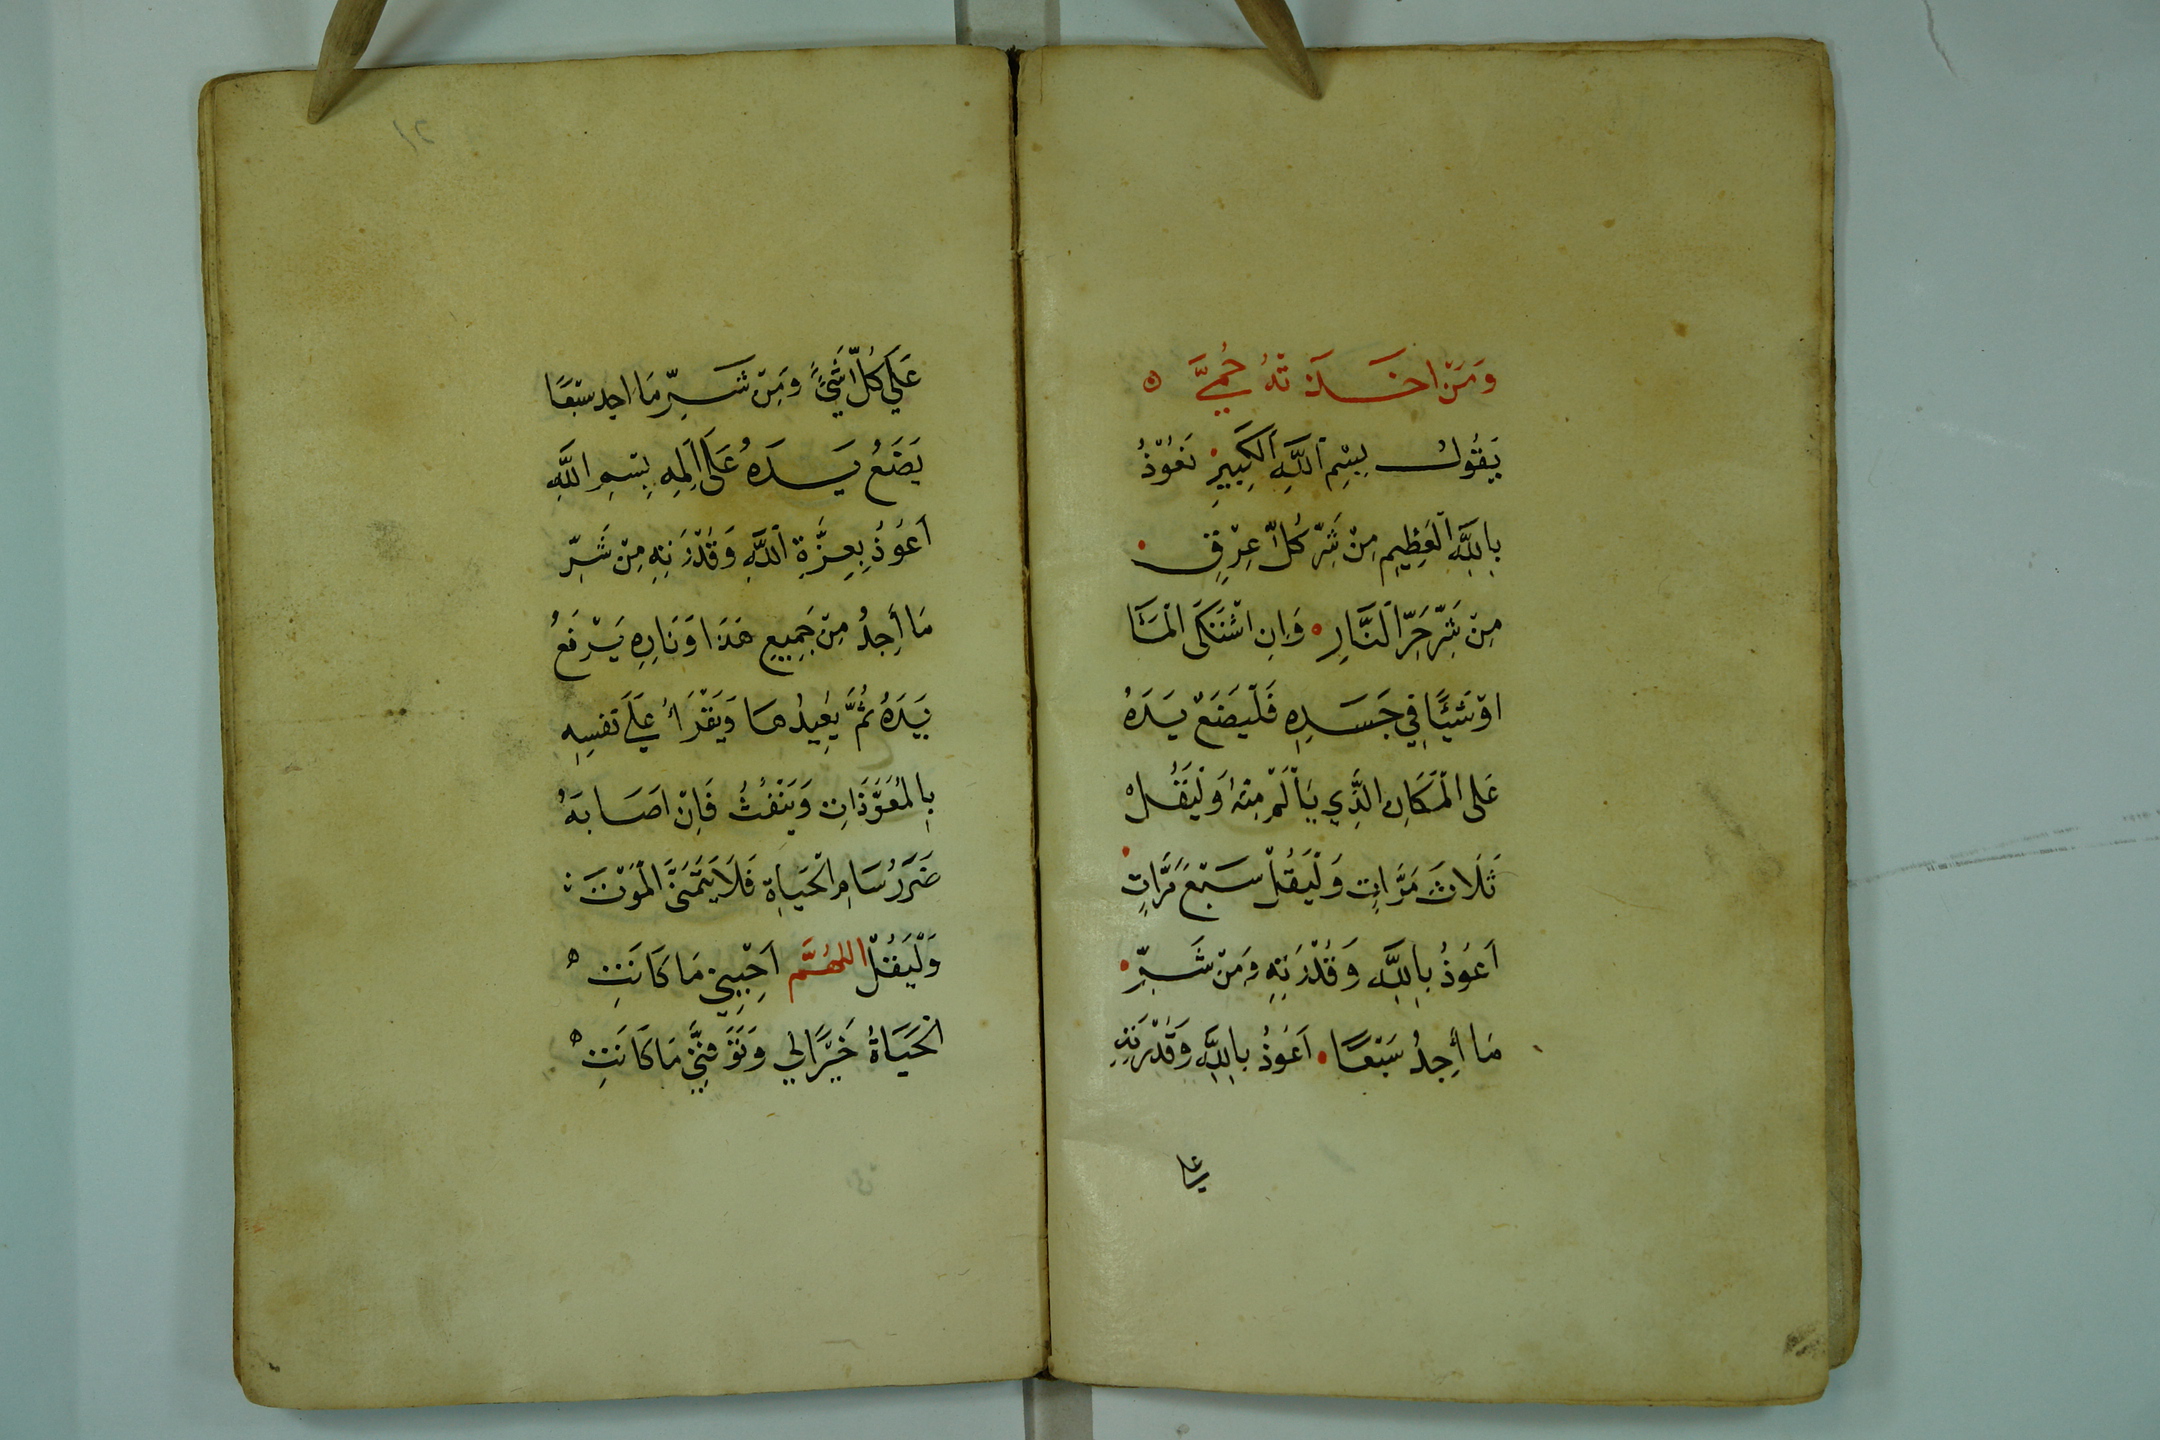 وَمَنْ اخَذَتْهُ حُمَّيَ ه
يَقُولُ بِسْمِ اللَّهِ الْكَبِيرِ نَعُوْذُ
بِاللَّهِ الْعَظِيمِ مِنْ شَرِّ كُلِّ عِرْقٍ
مِنْ شَرِّ حَرِّ النَّارِ وَاِنِ اشْتَكَى الْمًَا
اوْ شَيْئًا فِي جَسَدِهِ فَلْيَضَعْ يَدَهُ
عَلى الْمَكَانِ الَّذِي يَأْلَمْ مِنْهُ وَلْيَقُلْ
ثَلَاثَ مَرَّاتٍ وَلْيَقُلْ سَبْعَ مَرَّاتٍ
اَعُوْذُ بِاللَّهِ وَقُدْرَتِهِ وَمَنْ شَرِّ
مَا أَجِدُ سَبْعًا اَعُوْذُ بِاللَّهِ وَقُدْرَتِهِ
عَلي
١٢
عَلَي كُلِّ شَيْءٍ وَمِنْ شَرِّ مَا اجد سَبْعًا
يَضَعُ يَدَهُ عَلَى اَلَمِهِ بِسْمِ اللَّهِ
اَعُوْذُ بِعِزَّةِ اللَّهِ وَقُدْرَتِهِ مِنْ شَرِّ
مَا أَجِدُ مِنْ جَمِيعِ هَذَا وَنَارِهِ يَرْفَعُ
يَدَهُ ثُمَّ يُعِيدُهَا وَيَقْرَأُ عَلَي نَفسِهِ
بِالْمُعَوَّذَاتِ وَيَنْفُثُ فَاِنْ اصَابَهُ
ضَرَرُ سَامِ الْحَيَاةِ فَلَا يَتَمَنَّ الْمَوْتَ
وَلْيَقُلْ اللهُمَّ اَحْيِيِنِي مَا كَانَتِ ه
الْحَيَاةُ خَيْرًا لِي وَتَوَفَّنِي مَا كَانَتِ ه